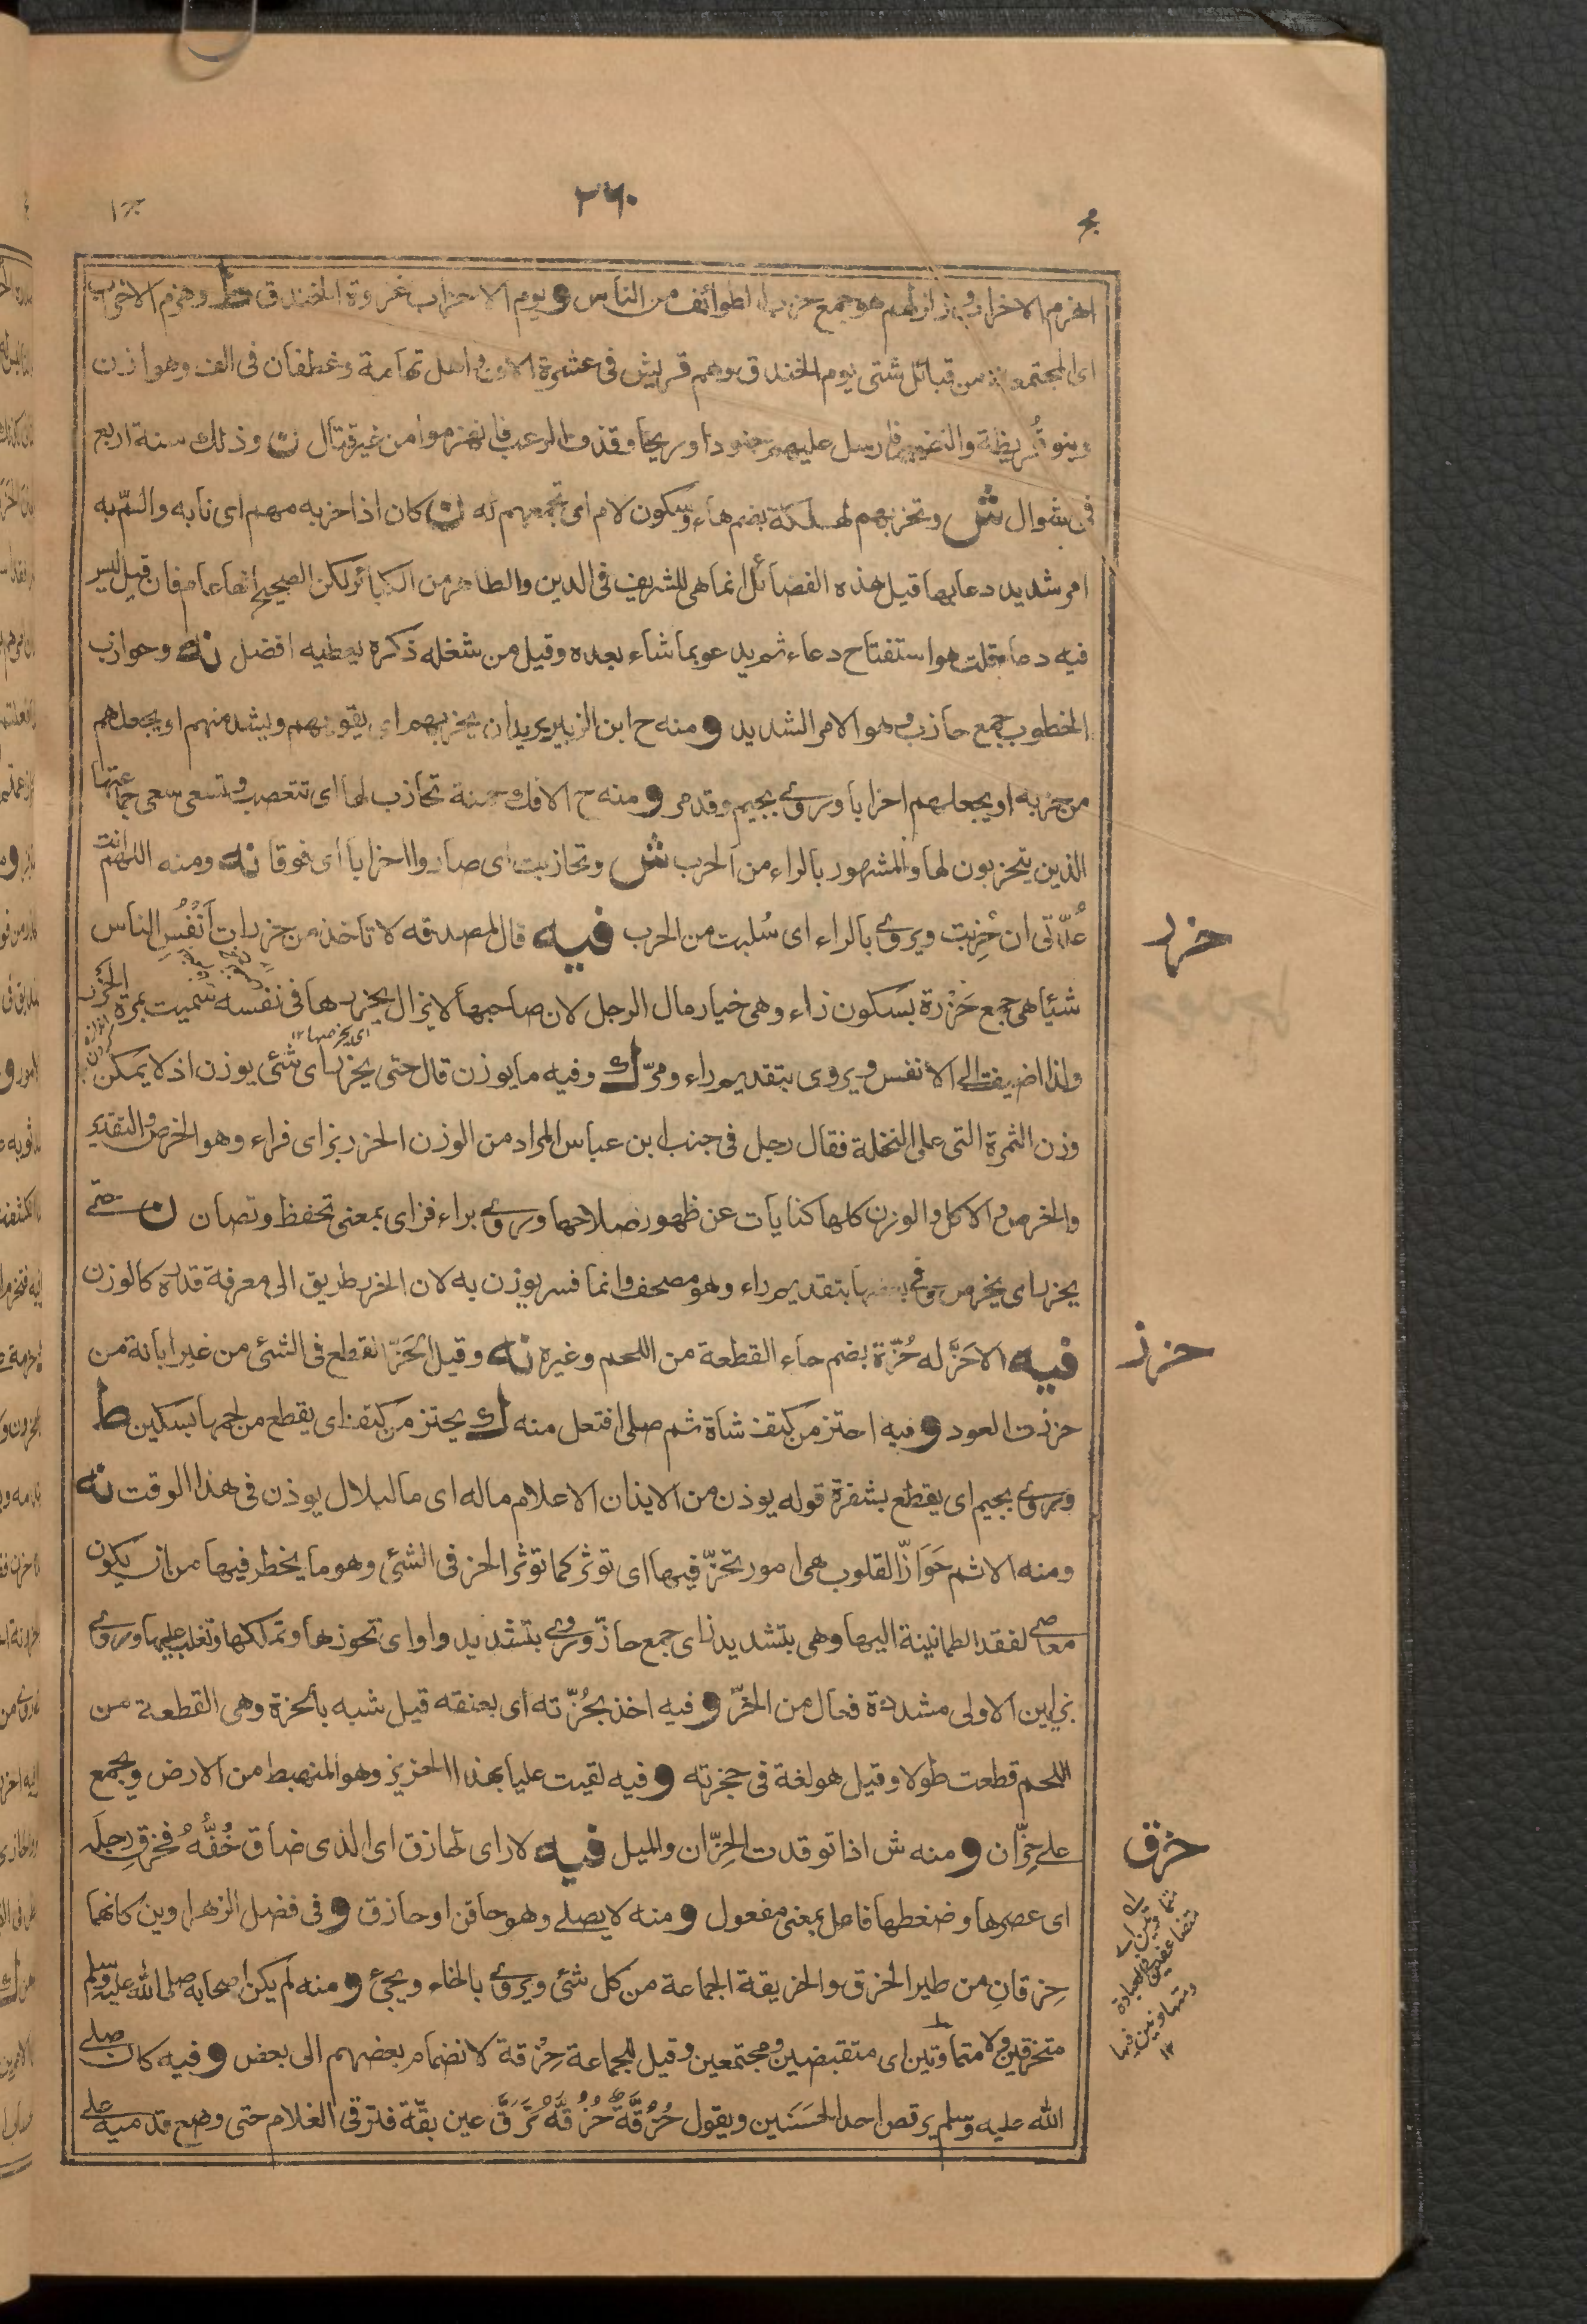 ٢٦٠
اهزم الاحزاب وزلزلهم هو جمع حزب الطوائف من الناس و يوم الاحزاب غزوة الخندق ط وهزم الاحزاب
اى المجتمعة من قبائل شتى يوم الخندق وهم قريش فى عشرة الاف و اهل تهامة وغطفان فى الف وهوازن
وبنو قُريظة والنضير فارسل عليهم جنودا وريحا وقذف الرعب فانهزموا من غير قتال ن وذلك سنة اربع
فى شوال ش وتحزبهم لهلكة بضم هاء وسكون لام اى تجمعهم له ن كان اذا حزبه مهم اى نابه والمّ به
امر شديد دعا بها قيل هذه الفضائل انما هى للشريف فى الدين والطاهر من الكبائر لكن الصحيح انها عام فان قيل ليس
فيه دعاء قلت هو استفتاح دعاء ثم يدعو بما شاء بعده وقيل من شغله ذكره يعطيه افضل نه وحوازب
الخطوب جمع حازب وهو الامر الشديد و منه ح ابن الزبير يريد ان يحزبهم اى يقويهم ويشد منهم او يجعلهم
من حزبه او يجعلهم احزابا وروى بجيم وقد مر و منه ح الافك حمنة تحازب لها اى تتعصب وتسعى سعى جماعتها
الذين يتحزبون لها والمشهور بالراء من الحرب ش وتحازبت اى صاروا احزابا اى فرقا نه ومنه اللهم انت
عُدّتى ان حُزِبت ويروى بالراء اى سُلبت من الحرب فيه قال لمصدقه لا تأخذ من حزرات اَنْفُسِ الناس
حزر
شيئا هى جمع حَزْرة بسكون زاء وهى خيار مال الرجل لان صاحبها لا يزال يحزرها فى نفسه سميت بمرة الحَزْر
ولذا اضيفت الى الانفس ويروى بتقديم راء ومرّ ك وفيه ما يوزن قال حتى يحزر اى شئ يوزن اذ لا يمكن
اى يخرصها ١٢
وزن الثمرة التى على النخلة فقال رجل فى جنب ابن عباس المراد من الوزن الحزر بزاى فراء وهو الخرص والتقدير
والخرص والاكل والوزن كلها كنايات عن ظهور صلاحها وروى براء فزاى بمعنى تحفظ وتصان ن حتى
يحزر اى يخرص وفى بعضها بتقديم راء وهو مصحف وانما فسر يوزن به لان الحزر طريق الى معرفة قدره كالوزن
حزز
فيه الاحَزَّ له حُزّة بضم حاء القطعة من اللحم وغيره نه وقيل الحَزّ القطع فى الشئ من غير ابانة من
حززت العود و فيه احتز من كتف شاة ثم صلى افتعل منه ك يحتز من كتف اى يقطع من لحمها بسكين ط
وروى بجيم اى يقطع بشفرة قوله يوذن من الايذان الاعلام ماله اى ما لبلال يوذن فى هذا الوقت نه
ومنه الاثم حَوَازّ القلوب هى امور تحزّ فيها اى توثر كما توثر الحز فى الشئ وهو ما يخطر فيها من ان يكون
معاصى لفقد الطمانينة اليها وهى بتشديد زاى جمع حازّ وروى بتشديد واو اى تحوزها وتملكها وتغلب عليها وروى
بزايين الاولى مشددة فعال من الحزّ و فيه اخذ بحُزّته اى بعنقه قيل شبه بالحزة وهى القطعة من
اللحم قطعت طولا وقيل هو لغة فى حجزته و فيه لقيت عليا بهذا الحزيز وهو المنهبط من الارض ويجمع
على حِزّان و منه ش اذا توقدت الحِزّان والميل فيه لا راى لحازق اى الذى ضاق خُفُّهُ فحزق رجله
حزق
اى عصرها وضغطها فاعل بمعنى مفعول و منه لا يصلى وهو حاقن او حازق و فى فضل الزهراوين كانهما
حِزقانِ من طير الحزق والحزيقة الجماعة من كل شئ ويروى بالخاء ويجئ و منه لم يكن اصحابه صلى الله عليه وسلم
متحزقين ولا متماوتين اى متقبضين ومجتمعين وقيل للجماعة حِزْقة لانضمام بعضهم الى بعض و فيه كان صلى
الله عليه وسلم يرقص احد الحسَنَين ويقول حُزُقَّةٌ حُزُقَّهْ تَرَقَّ عين بقّة فترقى الغلام حتى وضع قدميه على